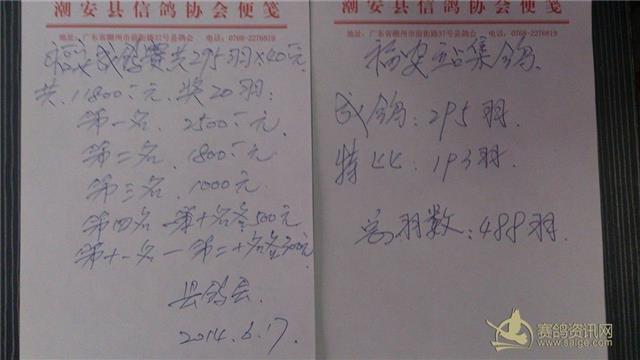 潮安县信鸽协会便笺
地址：广东省潮州市前街路37号县鸽会 电话：0768-2276819
成鸽赛共295羽×40元
共11800元,奖20羽:
第一名 2500元
第二名 1800元
第三名 1000元
第四名—第十名各500元
第十一名—第二十名各300元
县鸽会
2014.6.17
潮安县信鸽协会便笺
地址：广东省潮州市前街路37号县鸽会 电话：0768-2276819
福安站集鸽
成鸽:295羽.
特比:193羽.
总羽数:488羽.
赛鸽资讯网
www.saige.com